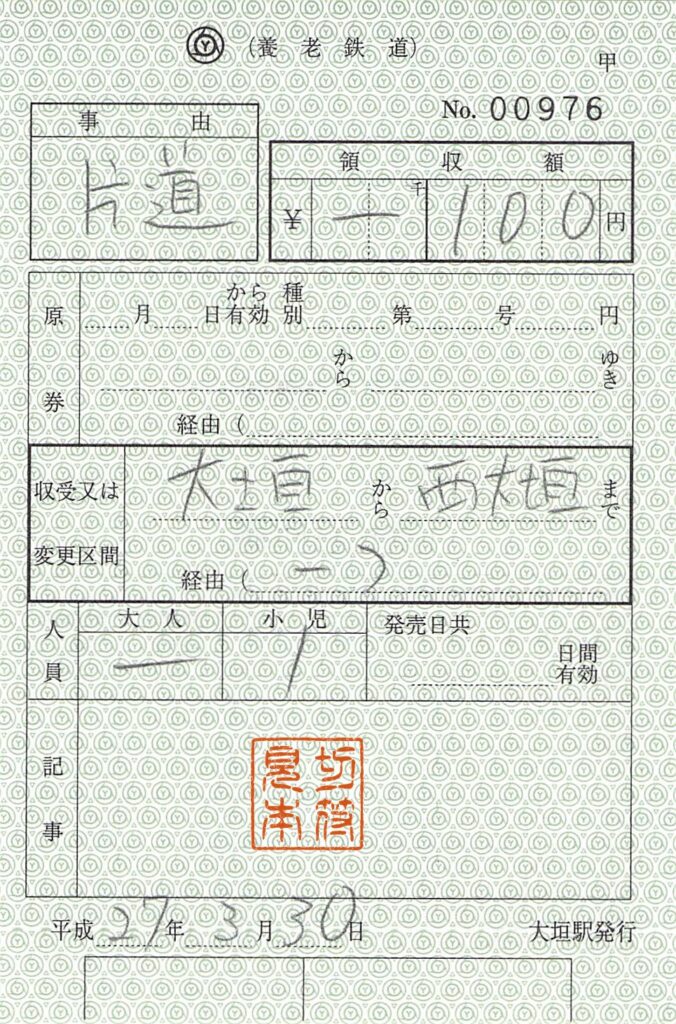 (養老鉄道)
甲
No. 00976
事由
片道
領収額
¥ 一 千 100 円
原券
月 日から有効 種別 第 号 円
から ゆき
経由(
収受又は変更区間
大垣 から 西大垣 まで
経由( ー )
人員
大人 小児 発売日共
一 1 日間有効
記事
切符
見本
平成 27年 3月 30日 大垣駅発行